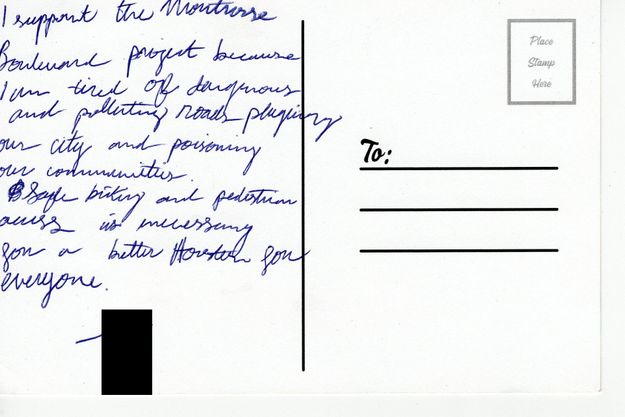 I support the Montrose
Boulevard project because
I am tired of dangerous
and polluting roads plaguing
our city and poisoning
our communities.
Safe biking and pedestrian
access is necessary
for a better Houston for
everyone.
Place
Stamp
Here
To: